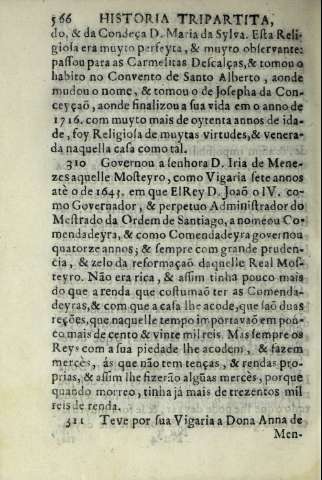 566 HISTORIA TRIPARTITA,
do, & da Condeça D. Maria da Sylva. Esta Reli-
giosa era muyto perfeyta, & muyto observante:
passou para as Carmelitas Descalças, & tomou o
habito no Convento de Santo Alberto, aonde
mudou o nome, & tomou o de Josepha da Con-
ceyçaõ, aonde finalizou a sua vida em o anno de
1716. com muyto mais de oytenta annos de ida-
de, foy Religiosa de muytas virtudes, & venera-
da naquella casa como tal.
310 Governou a senhora D. Iria de Mene-
zes aquelle Mosteyro, como Vigaria sete annos
atè o de 1643. em que ElRey D. Joaõ o IV. co-
mo Governador, & perpetuo Administrador do
Mestrado da Ordem de Santiago, a nomeou Co-
mendadeyra, & como Comendadeyra governou
quatorze annos; & sempre com grande pruden-
cia, & zelo da reformaçaõ daquelle Real Mos-
teyro. Não era rica, & assim tinha pouco mais
do que a renda que costumaõ ter as Comenda-
deyras, & com que a casa lhe acode, que saõ duas
reções, que naquelle tempo importavaõ em pou-
co mais de cento & vinte mil reis. Mas sempre os
Reys com a sua piedade lhe acodem, & fazem
mercès, às que não tem tenças, & rendas pro-
prias, & assim lhe fizerão algũas mercès, porque
quando morreo, tinha já mais de trezentos mil
reis de renda.
311 Teve por sua Vigaria a Dona Anna de
Men-